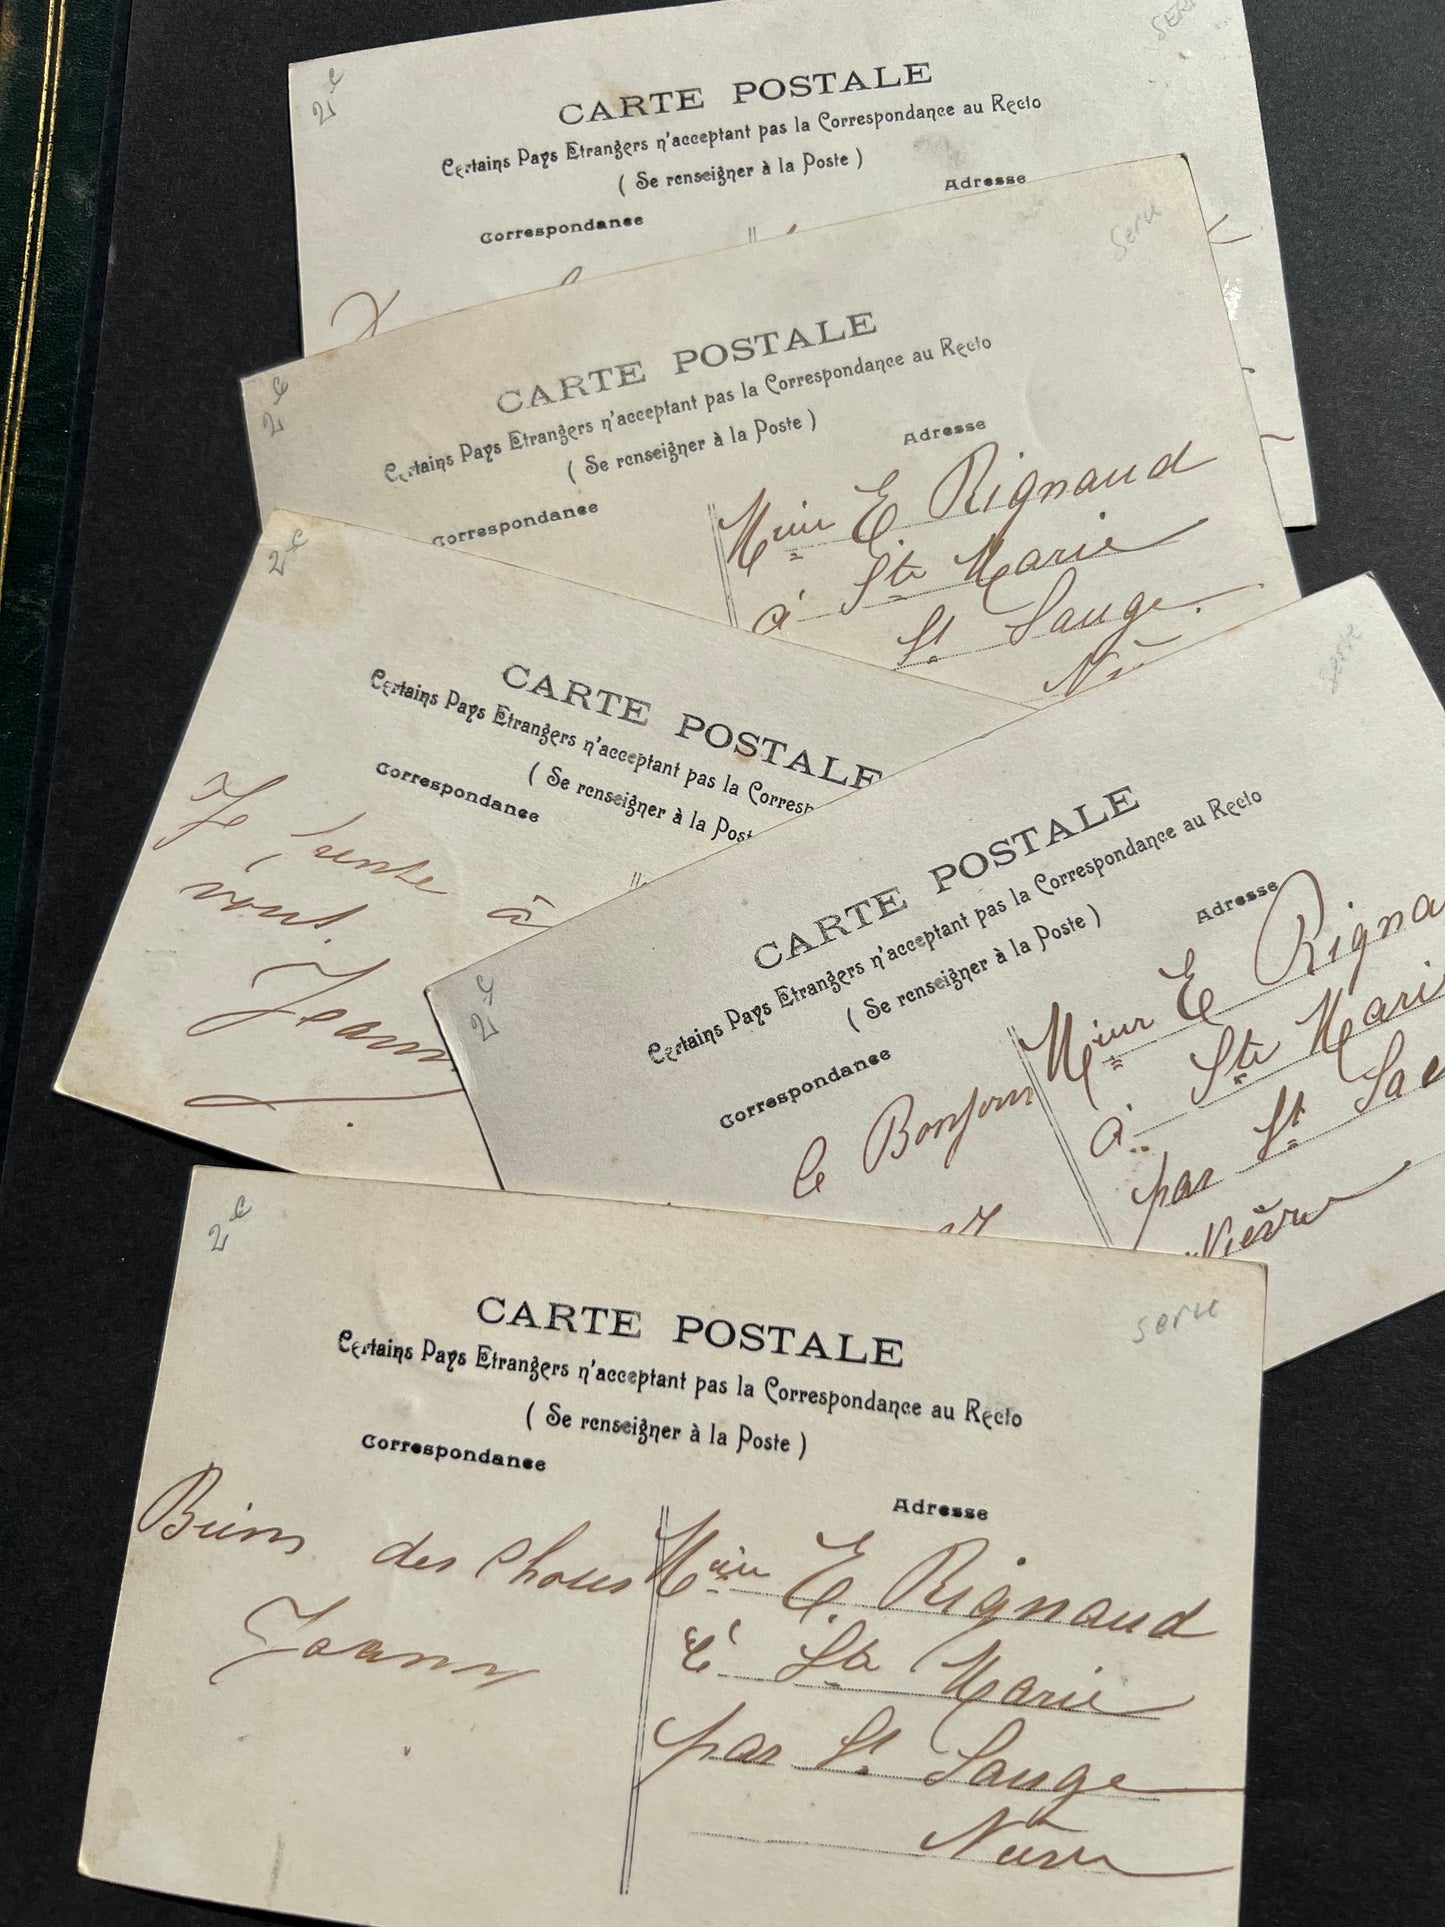 2 c
SER
CARTE POSTALE
Certains Pays Etrangers n'acceptant pas la Correspondance au Recto
( Se renseigner à la Poste )
Correspondance
Adresse
2 c
seru
CARTE POSTALE
Certains Pays Etrangers n'acceptant pas la Correspondance au Recto
( Se renseigner à la Poste )
Correspondance
Adresse
E Rignaud
à Ste Marie
St Sauge
2 c
CARTE POSTALE
Certains Pays Etrangers n'acceptant pas la Corresp
( Se renseigner à la Post
Correspondance
Je pense à
vous.
Jeanny
2 c
CARTE POSTALE
Certains Pays Etrangers n'acceptant pas la Correspondance au Recto
( Se renseigner à la Poste )
Correspondance
Adresse
le Bonjour
Mieur E Rigna
à Ste Mari
par St Sau
Nièvre
2 c
seru
CARTE POSTALE
Certains Pays Etrangers n'acceptant pas la Correspondance au Recto
( Se renseigner à la Poste )
Correspondance
Adresse
Biens des Choses
Joanny
E. Rignaud
à Ste Marie
par St Sauge
Nièvre